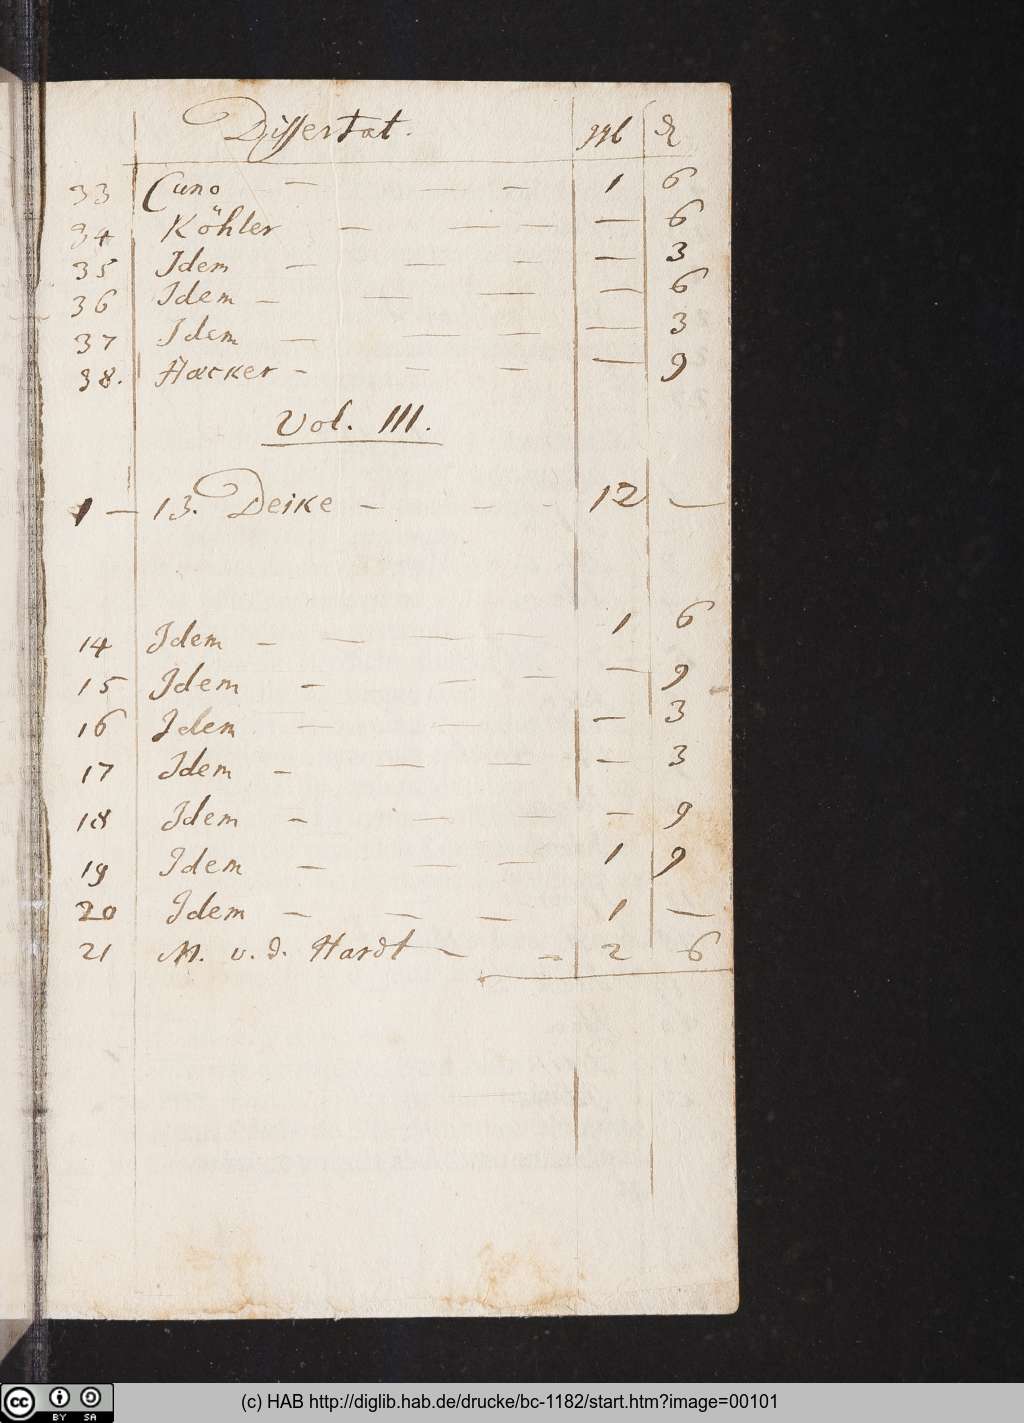 Dissertat. ₰
33 Cuno — — — 1 6
34 Köhler — — — — 6
35 Idem — — — — 3
36 Idem — — — — 6
37 Idem — — — — 3
38. Hacker — — — — 9
Vol. III.
1 — 13. Deike — — — 12 —
14 Idem — — — — 1 6
15 Idem — — — — 9
16 Idem — — — 3
17 Idem — — — — 3
18 Idem — — — — 9
19 Idem — — — 1 9
20 Idem — — — 1 —
21 M. v. d. Hardt — — 2 6
(c) HAB http://diglib.hab.de/drucke/bc-1182/start.htm?image=00101
cc BY SA